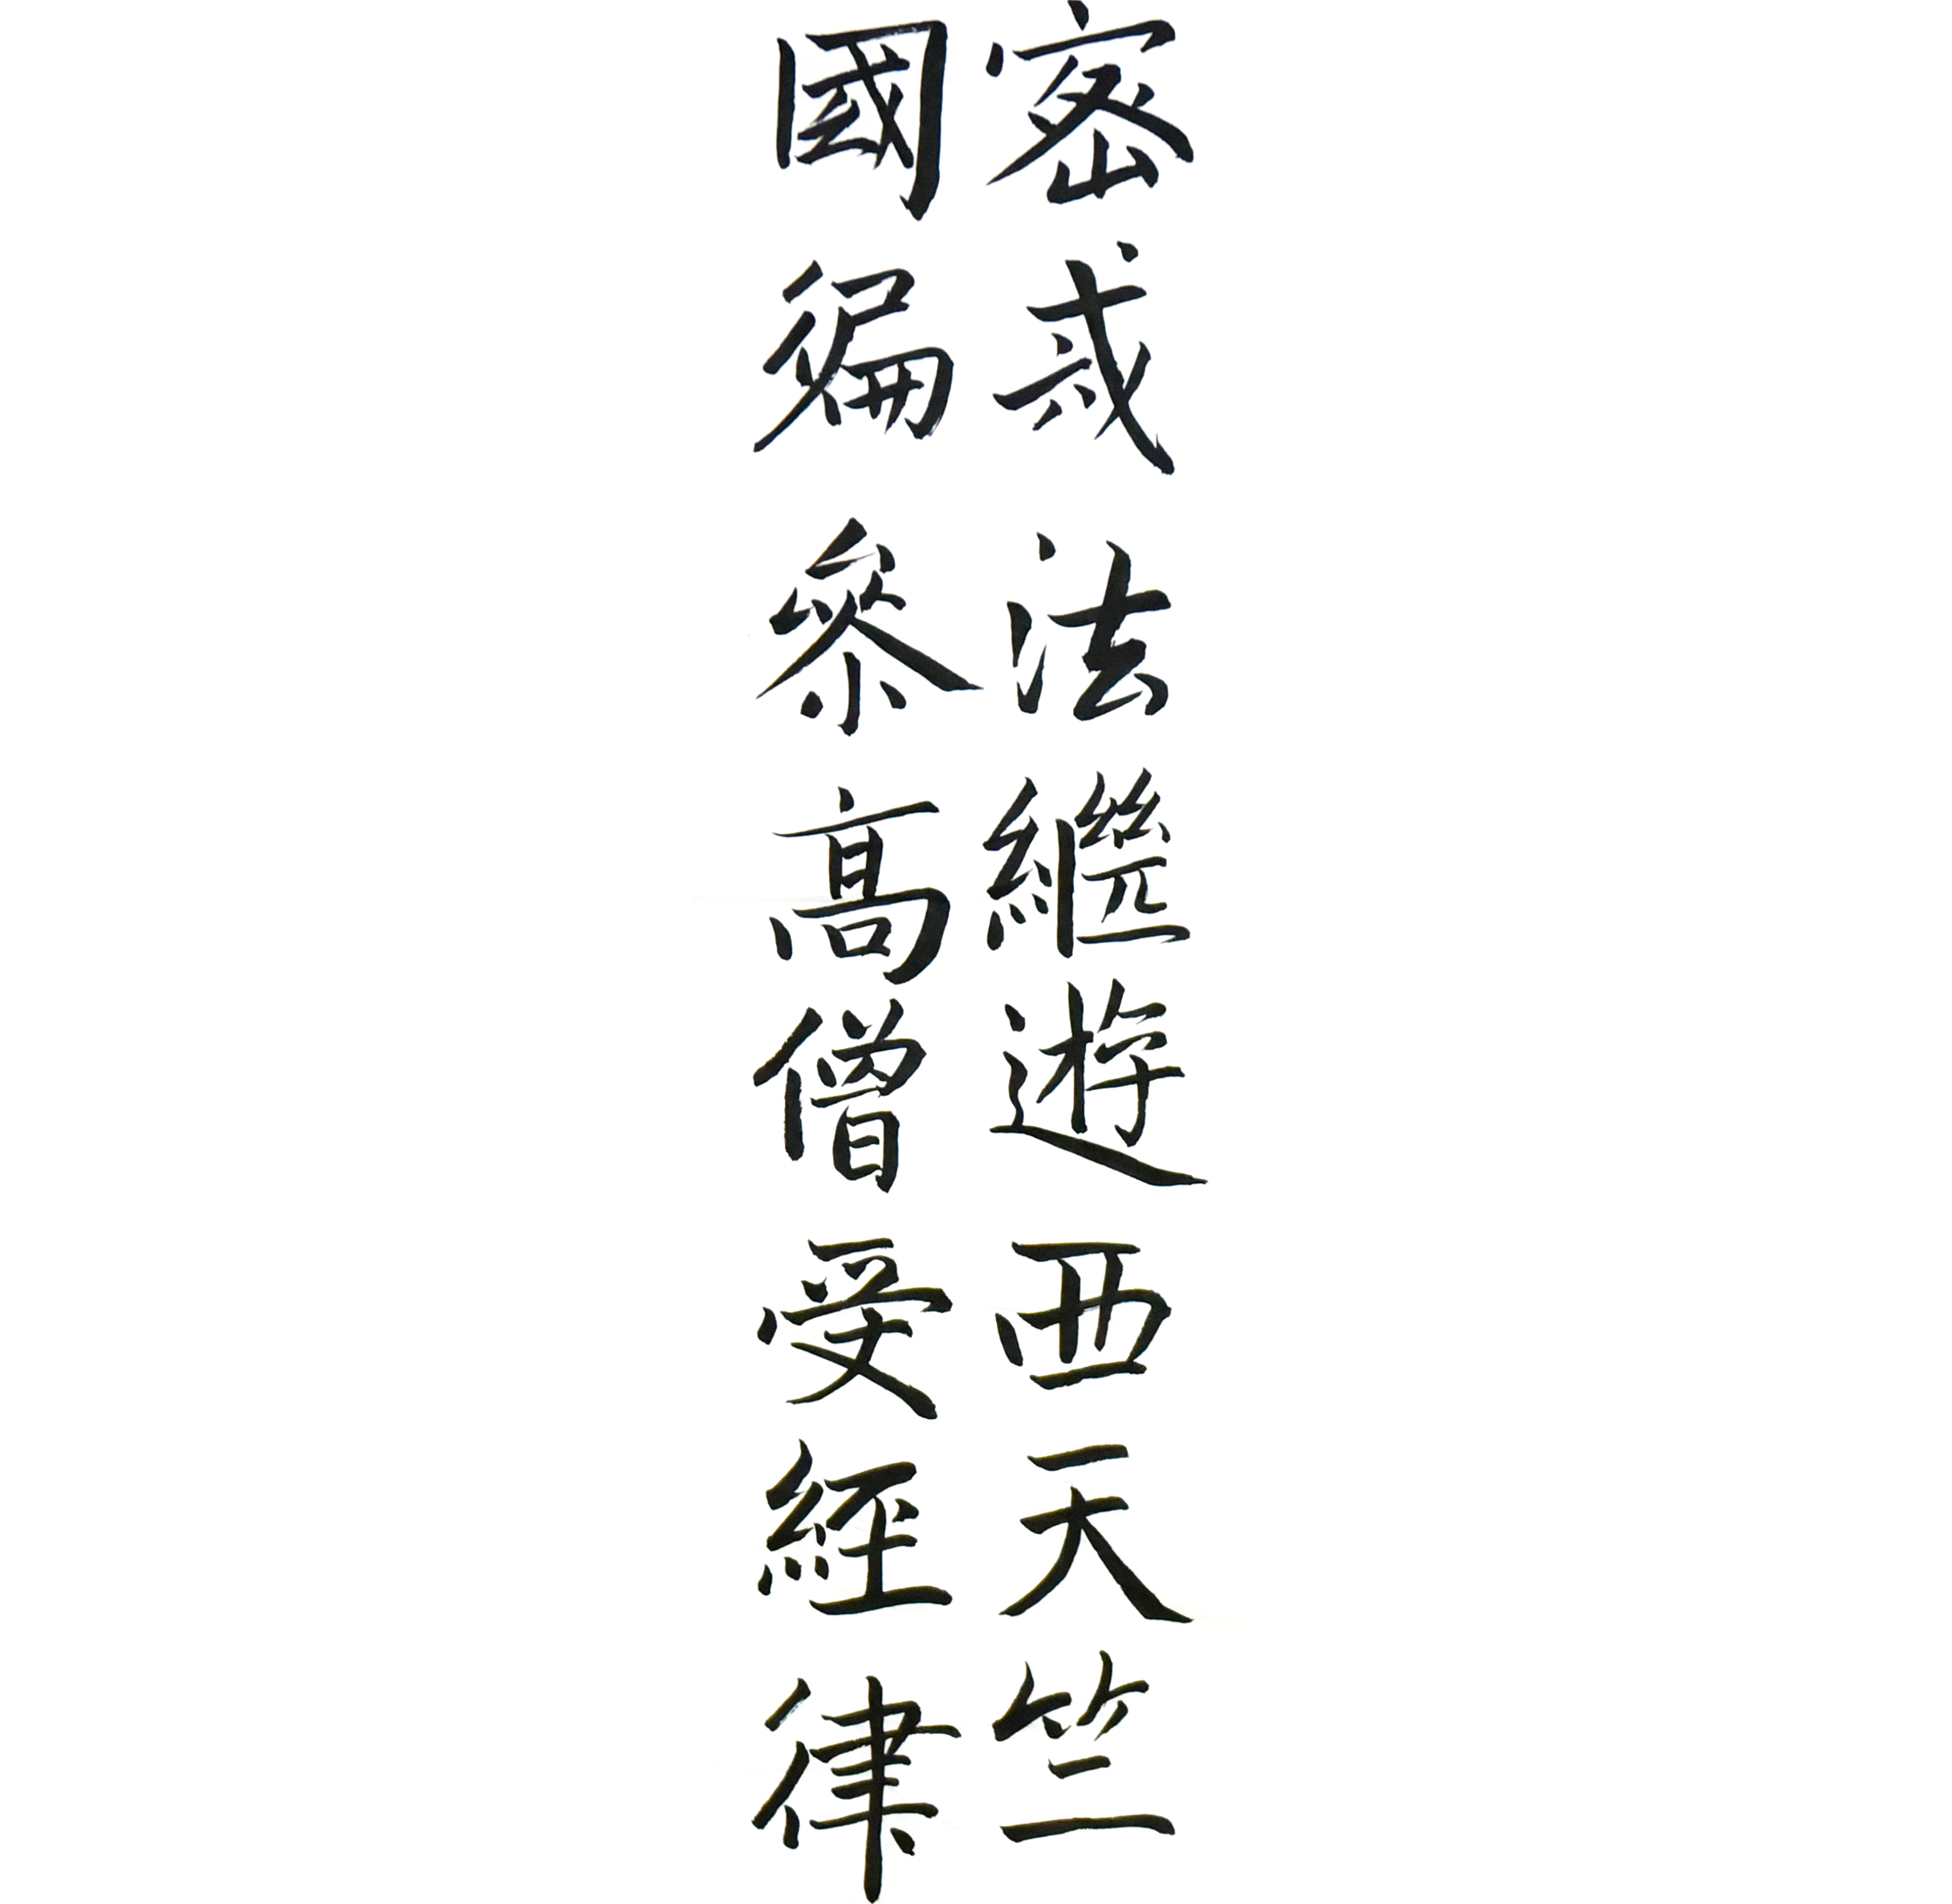 密戒法繼遊西天竺
國徧參高僧受經律